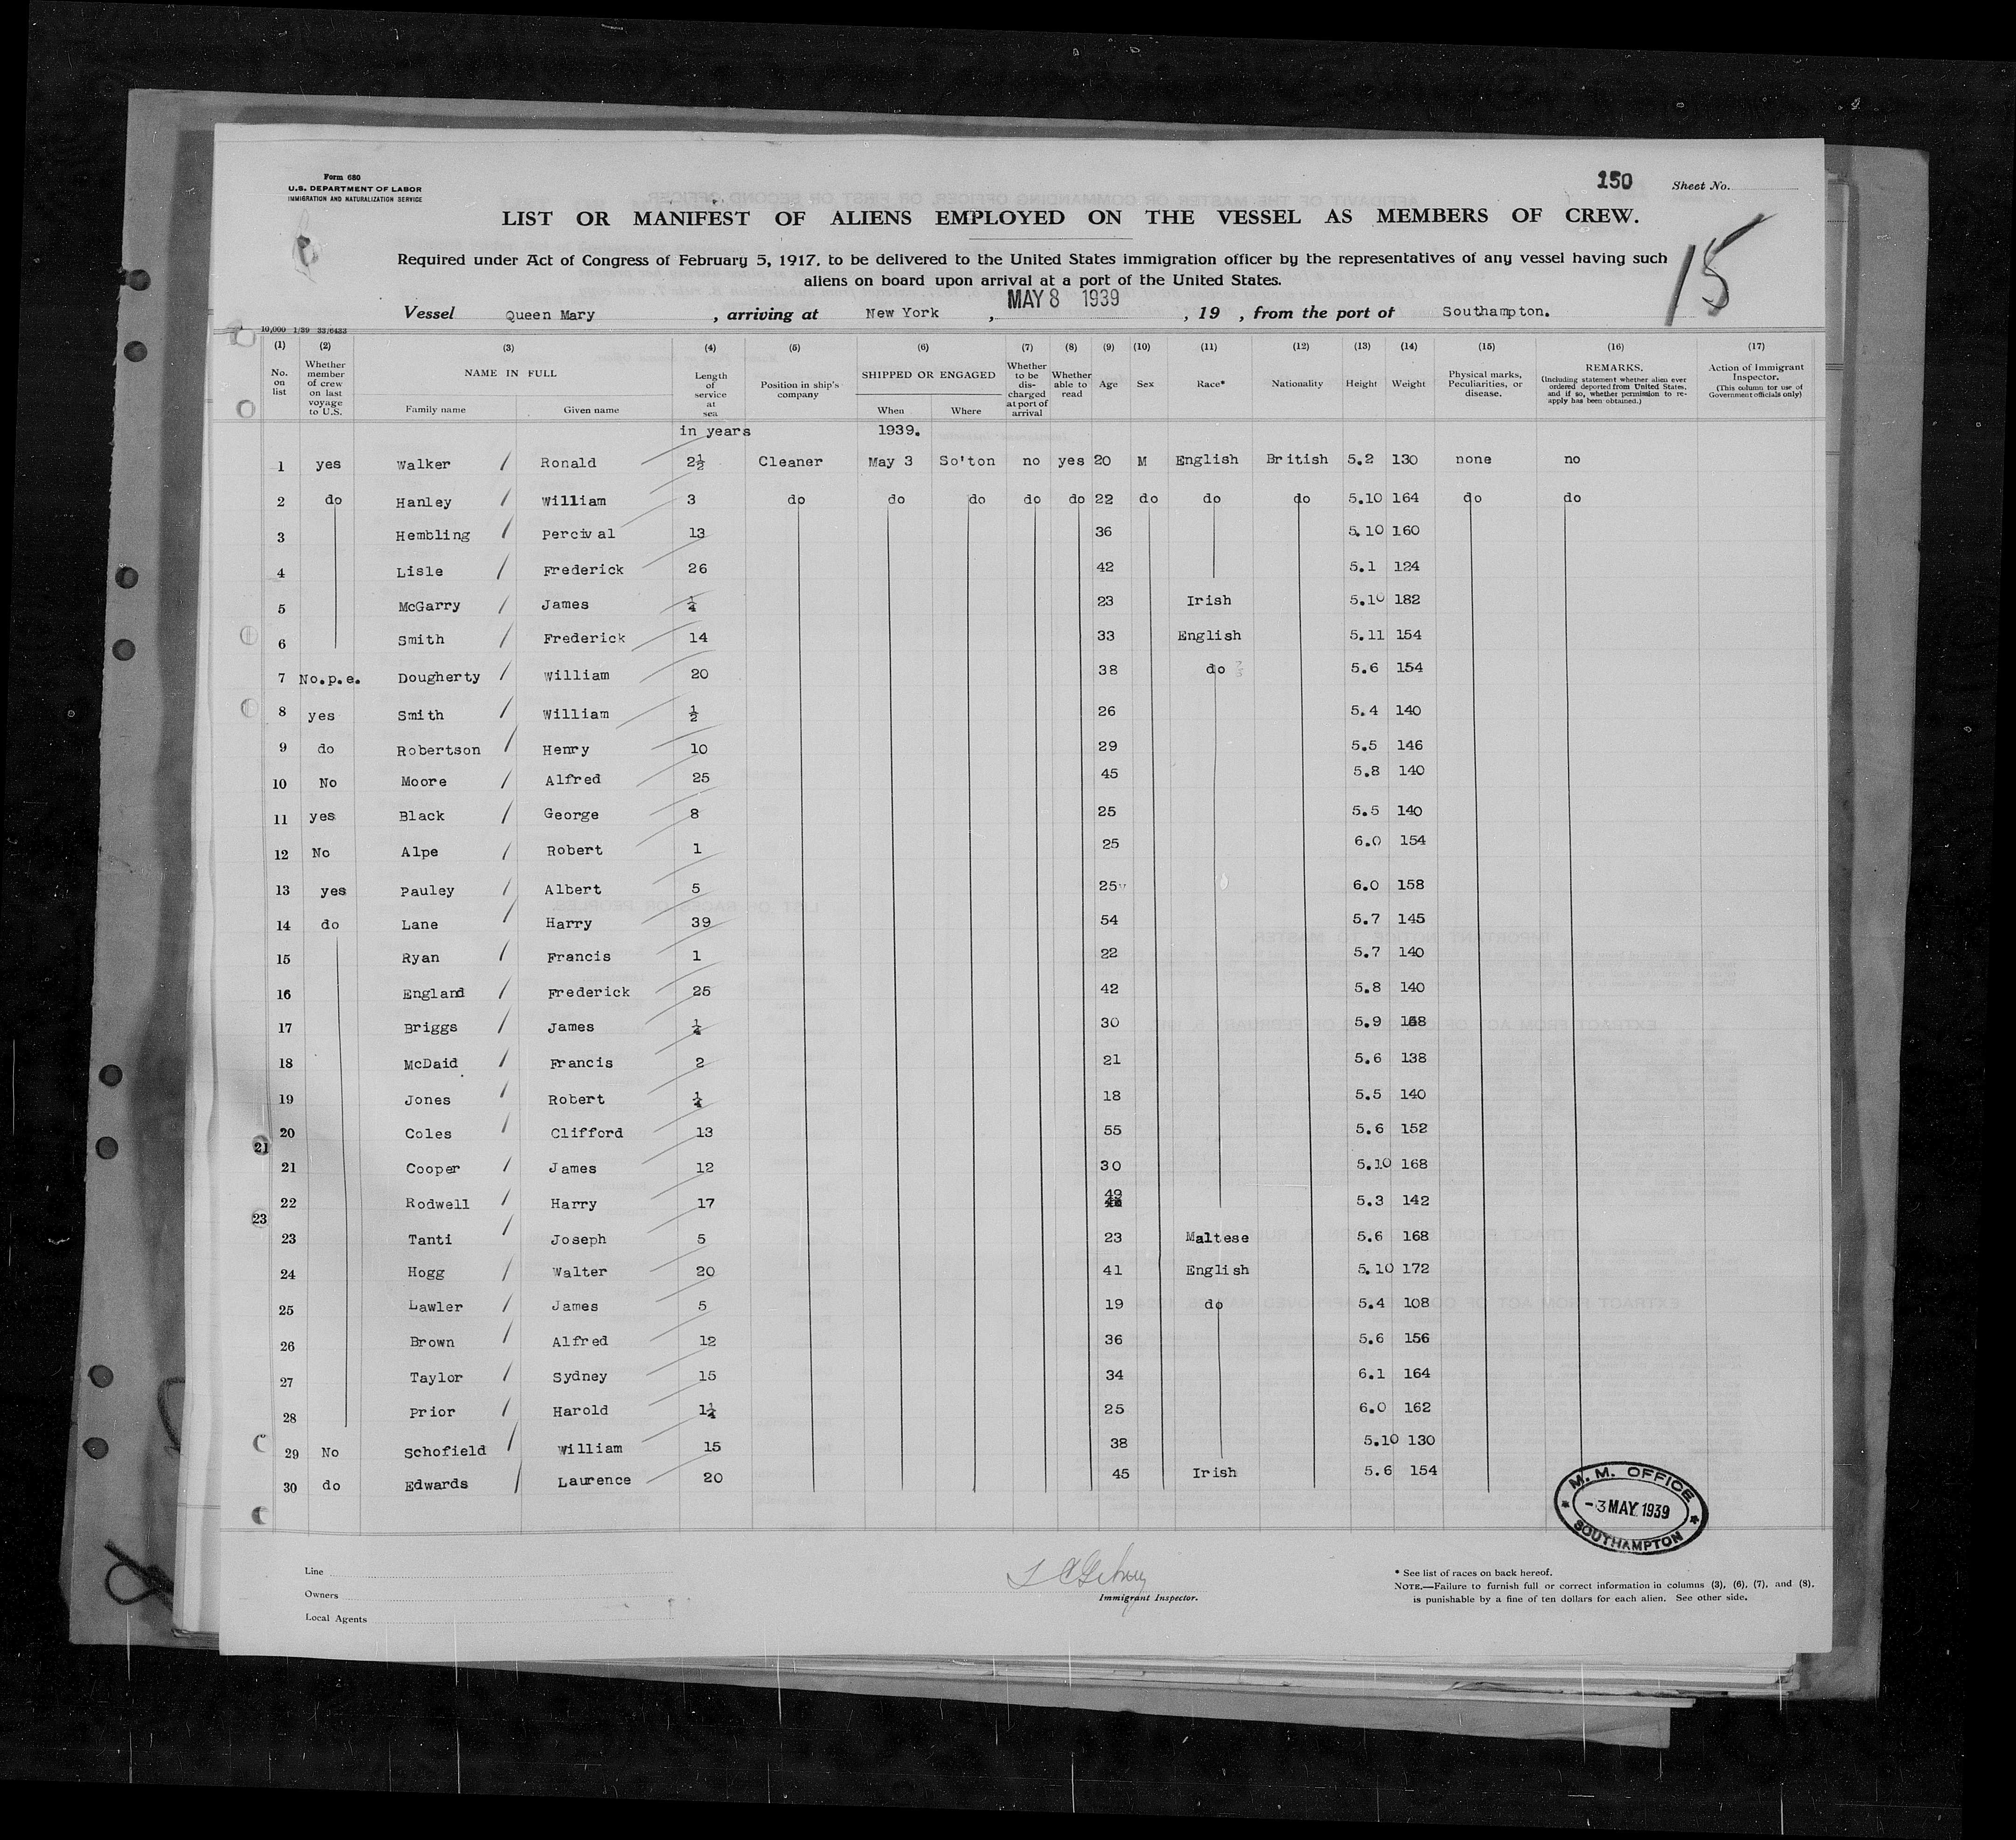 Form 680
U.S. DEPARTMENT OF LABOR
IMMIGRATION AND NATURALIZATION SERVICE
150 Sheet No.
LIST OR MANIFEST OF ALIENS EMPLOYED ON THE VESSEL AS MEMBERS OF CREW.
15
Required under Act of Congress of February 5, 1917, to be delivered to the United States immigration officer by the representatives of any vessel having such
aliens on board upon arrival at a port of the United States.
Vessel Queen Mary, arriving at New York, MAY 8 1939, 19 , from the port of Southampton.
10,000 1/39 33/6433
(1) (2) (3) (4) (5) (6) (7) (8) (9) (10) (11) (12) (13) (14) (15) (16) (17)
No. on list
Whether member of crew on last voyage to U.S.
NAME IN FULL
Family name Given name
Length of service at sea
Position in ship's company
SHIPPED OR ENGAGED
When Where
Whether to be discharged at port of arrival
Whether able to read
Age Sex Race* Nationality Height Weight
Physical marks, Peculiarities, or disease.
REMARKS.
(Including statement whether alien ever ordered deported from United States, and if so, whether permission to re-apply has been obtained.)
Action of Immigrant Inspector.
(This column for use of Government officials only)
in years 1939.
1 yes Walker Ronald 2½ Cleaner May 3 So'ton no yes 20 M English British 5.2 130 none no
2 do Hanley William 3 do do do do do 22 do do do 5.10 164 do do
3 Hembling Percival 13 36 5.10 160
4 Lisle Frederick 26 42 5.1 124
5 McGarry James ¼ 23 Irish 5.10 182
6 Smith Frederick 14 33 English 5.11 154
7 No.p.e. Dougherty William 20 38 do 5.6 154
8 yes Smith William ½ 26 5.4 140
9 do Robertson Henry 10 29 5.5 146
10 No Moore Alfred 25 45 5.8 140
11 yes Black George 8 25 5.5 140
12 No Alpe Robert 1 25 6.0 154
13 yes Pauley Albert 5 25 6.0 158
14 do Lane Harry 39 54 5.7 145
15 Ryan Francis 1 22 5.7 140
16 England Frederick 25 42 5.8 140
17 Briggs James ¼ 30 5.9
18 McDaid Francis 2 21 5.6 138
19 Jones Robert ¼ 18 5.5 140
20 Coles Clifford 13 55 5.6 152
21
21 Cooper James 12 30 5.10 168
22 Rodwell Harry 17 49 5.3 142
23
23 Tanti Joseph 5 23 Maltese 5.6 168
24 Hogg Walter 20 41 English 5.10 172
25 Lawler James 5 19 do 5.4 108
26 Brown Alfred 12 36 5.6 156
27 Taylor Sydney 15 34 6.1 164
28 Prior Harold 1¼ 25 6.0 162
29 No Schofield William 15 38 5.10 130
30 do Edwards Laurence 20 45 Irish 5.6 154
M. M. OFFICE
-3 MAY 1939
SOUTHAMPTON
Line
Owners
Local Agents
Immigrant Inspector.
* See list of races on back hereof.
NOTE.—Failure to furnish full or correct information in columns (3), (6), (7), and (8),
is punishable by a fine of ten dollars for each alien. See other side.